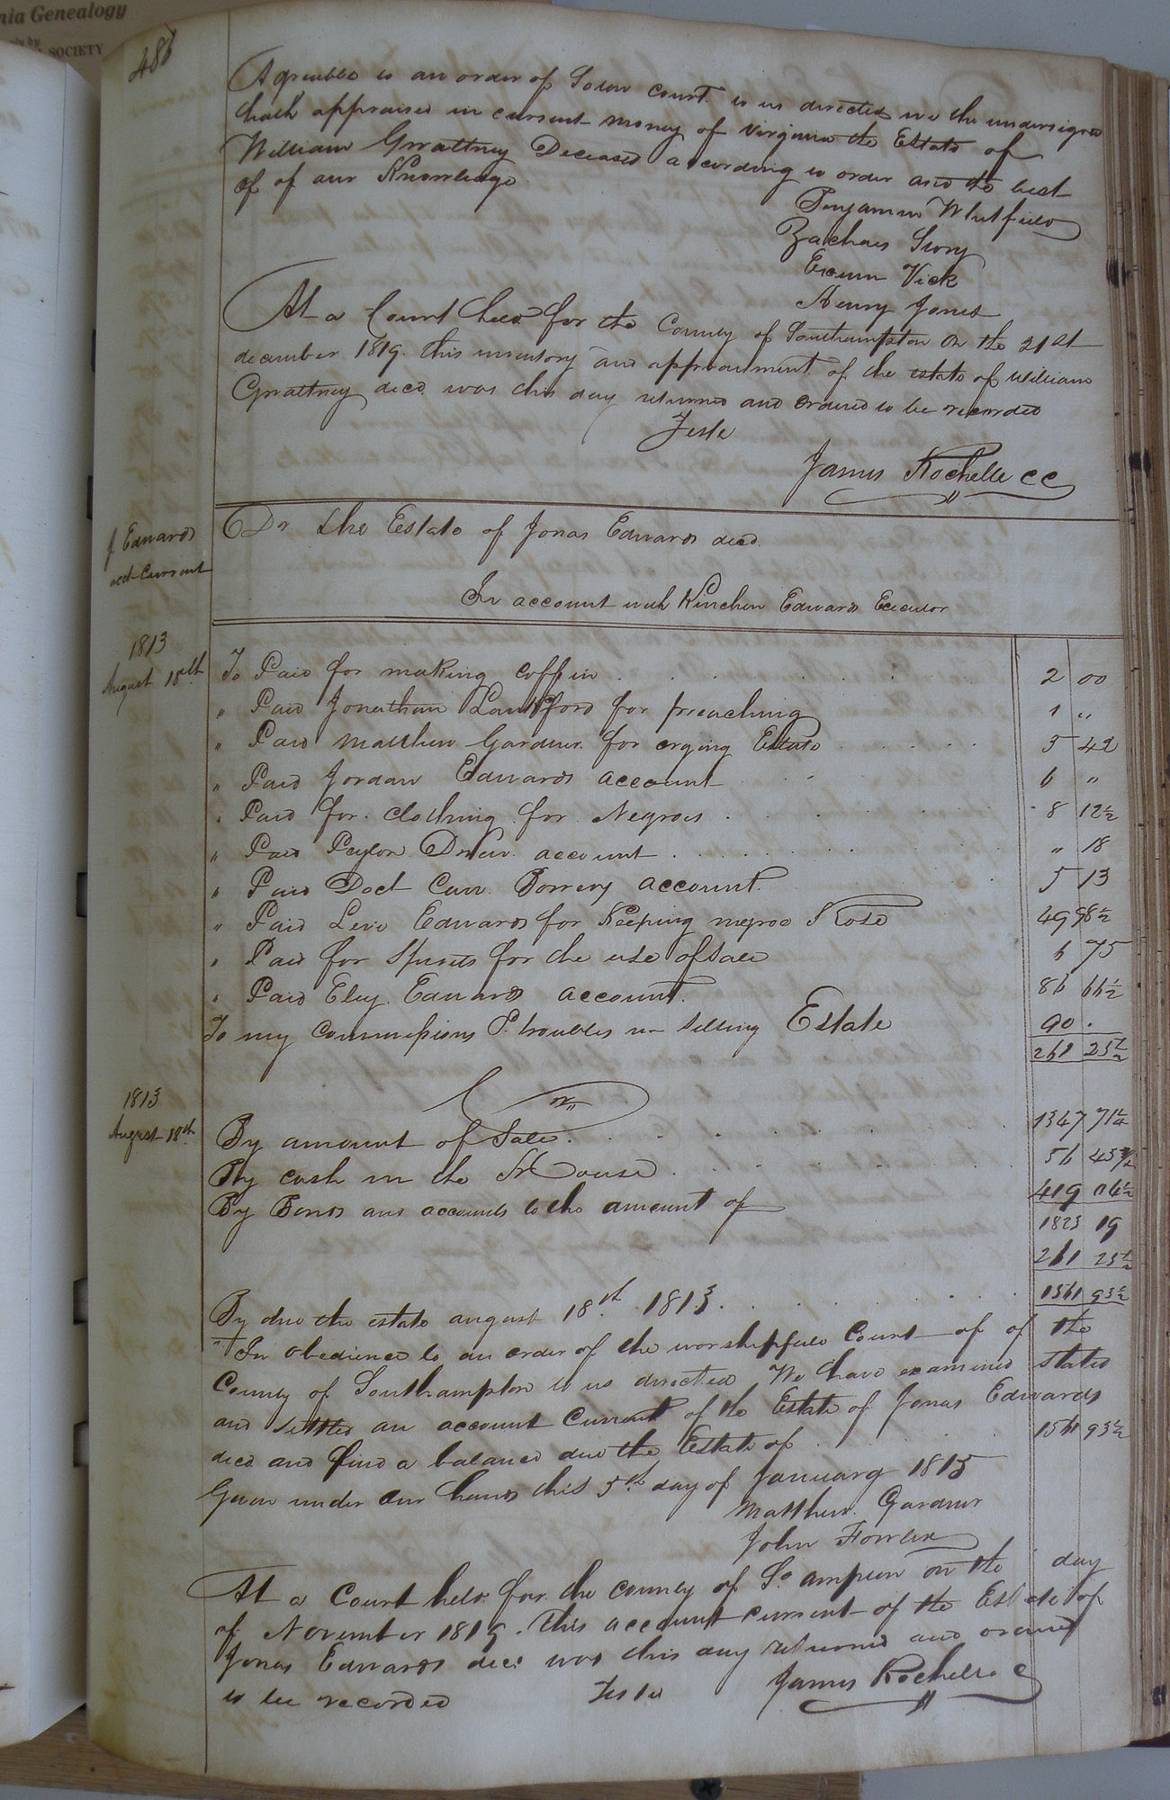 nia Genealogy
SOCIETY
486
Agreeable to an order of Soton Court to us directed we the undersigned
hath appraised in current money of Virginia the Estate of
William Gwaltney Deceased according to order and the best
of of our Knowledge
Benjamin Whitfield
Zachars Ivory
Exum Vick
Henry Jones
At a Court held for the County of Southampton on the 21st
december 1819. this inventory and appraisment of the estate of William
Gwaltney decd was this day returned and ordered to be recorded
Teste
James Rochelle CC
J. Edwards
acct Current
Dr The Estate of Jonas Edwards decd.
In account with Kinchen Edwards Executor
1813
August 18th
To Paid for making coffin 2 00
" Paid Jonathan Lankford for preaching 1 "
" Paid Matthew Gardner for crying Estate 5 42
" Paid Jordan Edwards account 6 "
" Paid for clothing for Negroes 8 12½
" Paid account " 18
" Paid Doct account 5 13
" Paid Levi Edwards for Keeping negroe Rose 49 98½
" Paid for Spirits for the use of Sale 6 75
" Paid Eley Edwards account. 86 66½
To my commissions & troubles in selling Estate 90 .
261 25½
Cr
1813
August 18th
By amount of Sale. 1347 71¼
By cash in the House 56 43¾
By Bonds and accounts to the amount of 419 04½
1823 19
261 25½
By due the estate august 18th 1813. 1561 93½
In obedience to an order of the worshipfull Court of of the
County of Southampton to us directed We have examined stated
and settled an account Current of the Estate of Jonas Edwards
decd and find a balance due the Estate of 1561 93½
Given under our hands this 5th day of January 1815
Matthew Gardner
John Fowler
At a Court held for the county of So ampton on the day
of November 1819. this account current of the Estate of
Jonas Edwards decd was this day returned and ordered
to be recorded Teste James Rochelle C